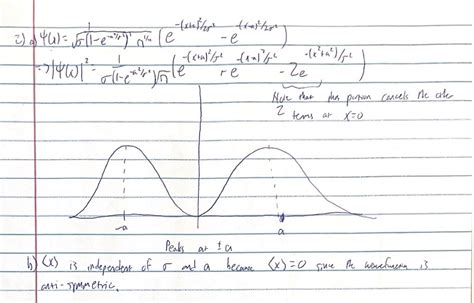 2) a) Ψ(x) = 1/√(σ(1-e^(-a²/σ²)) π^(1/4) (e^(-(x+a)²/2σ²) - e^(-(x-a)²/2σ²))
⇒ |Ψ(x)|² = 1/(σ(1-e^(-a²/σ²))√π) (e^(-(x+a)²/σ²) + e^(-(x-a)²/σ²) - 2e^(-(x²+a²)/σ²))
Note that this portion cancels the other
2 terms at x=0
-a a
Peaks at ±a
b) ⟨x⟩ is independent of σ and a because ⟨x⟩=0 since the wavefunction is
anti-symmetric.